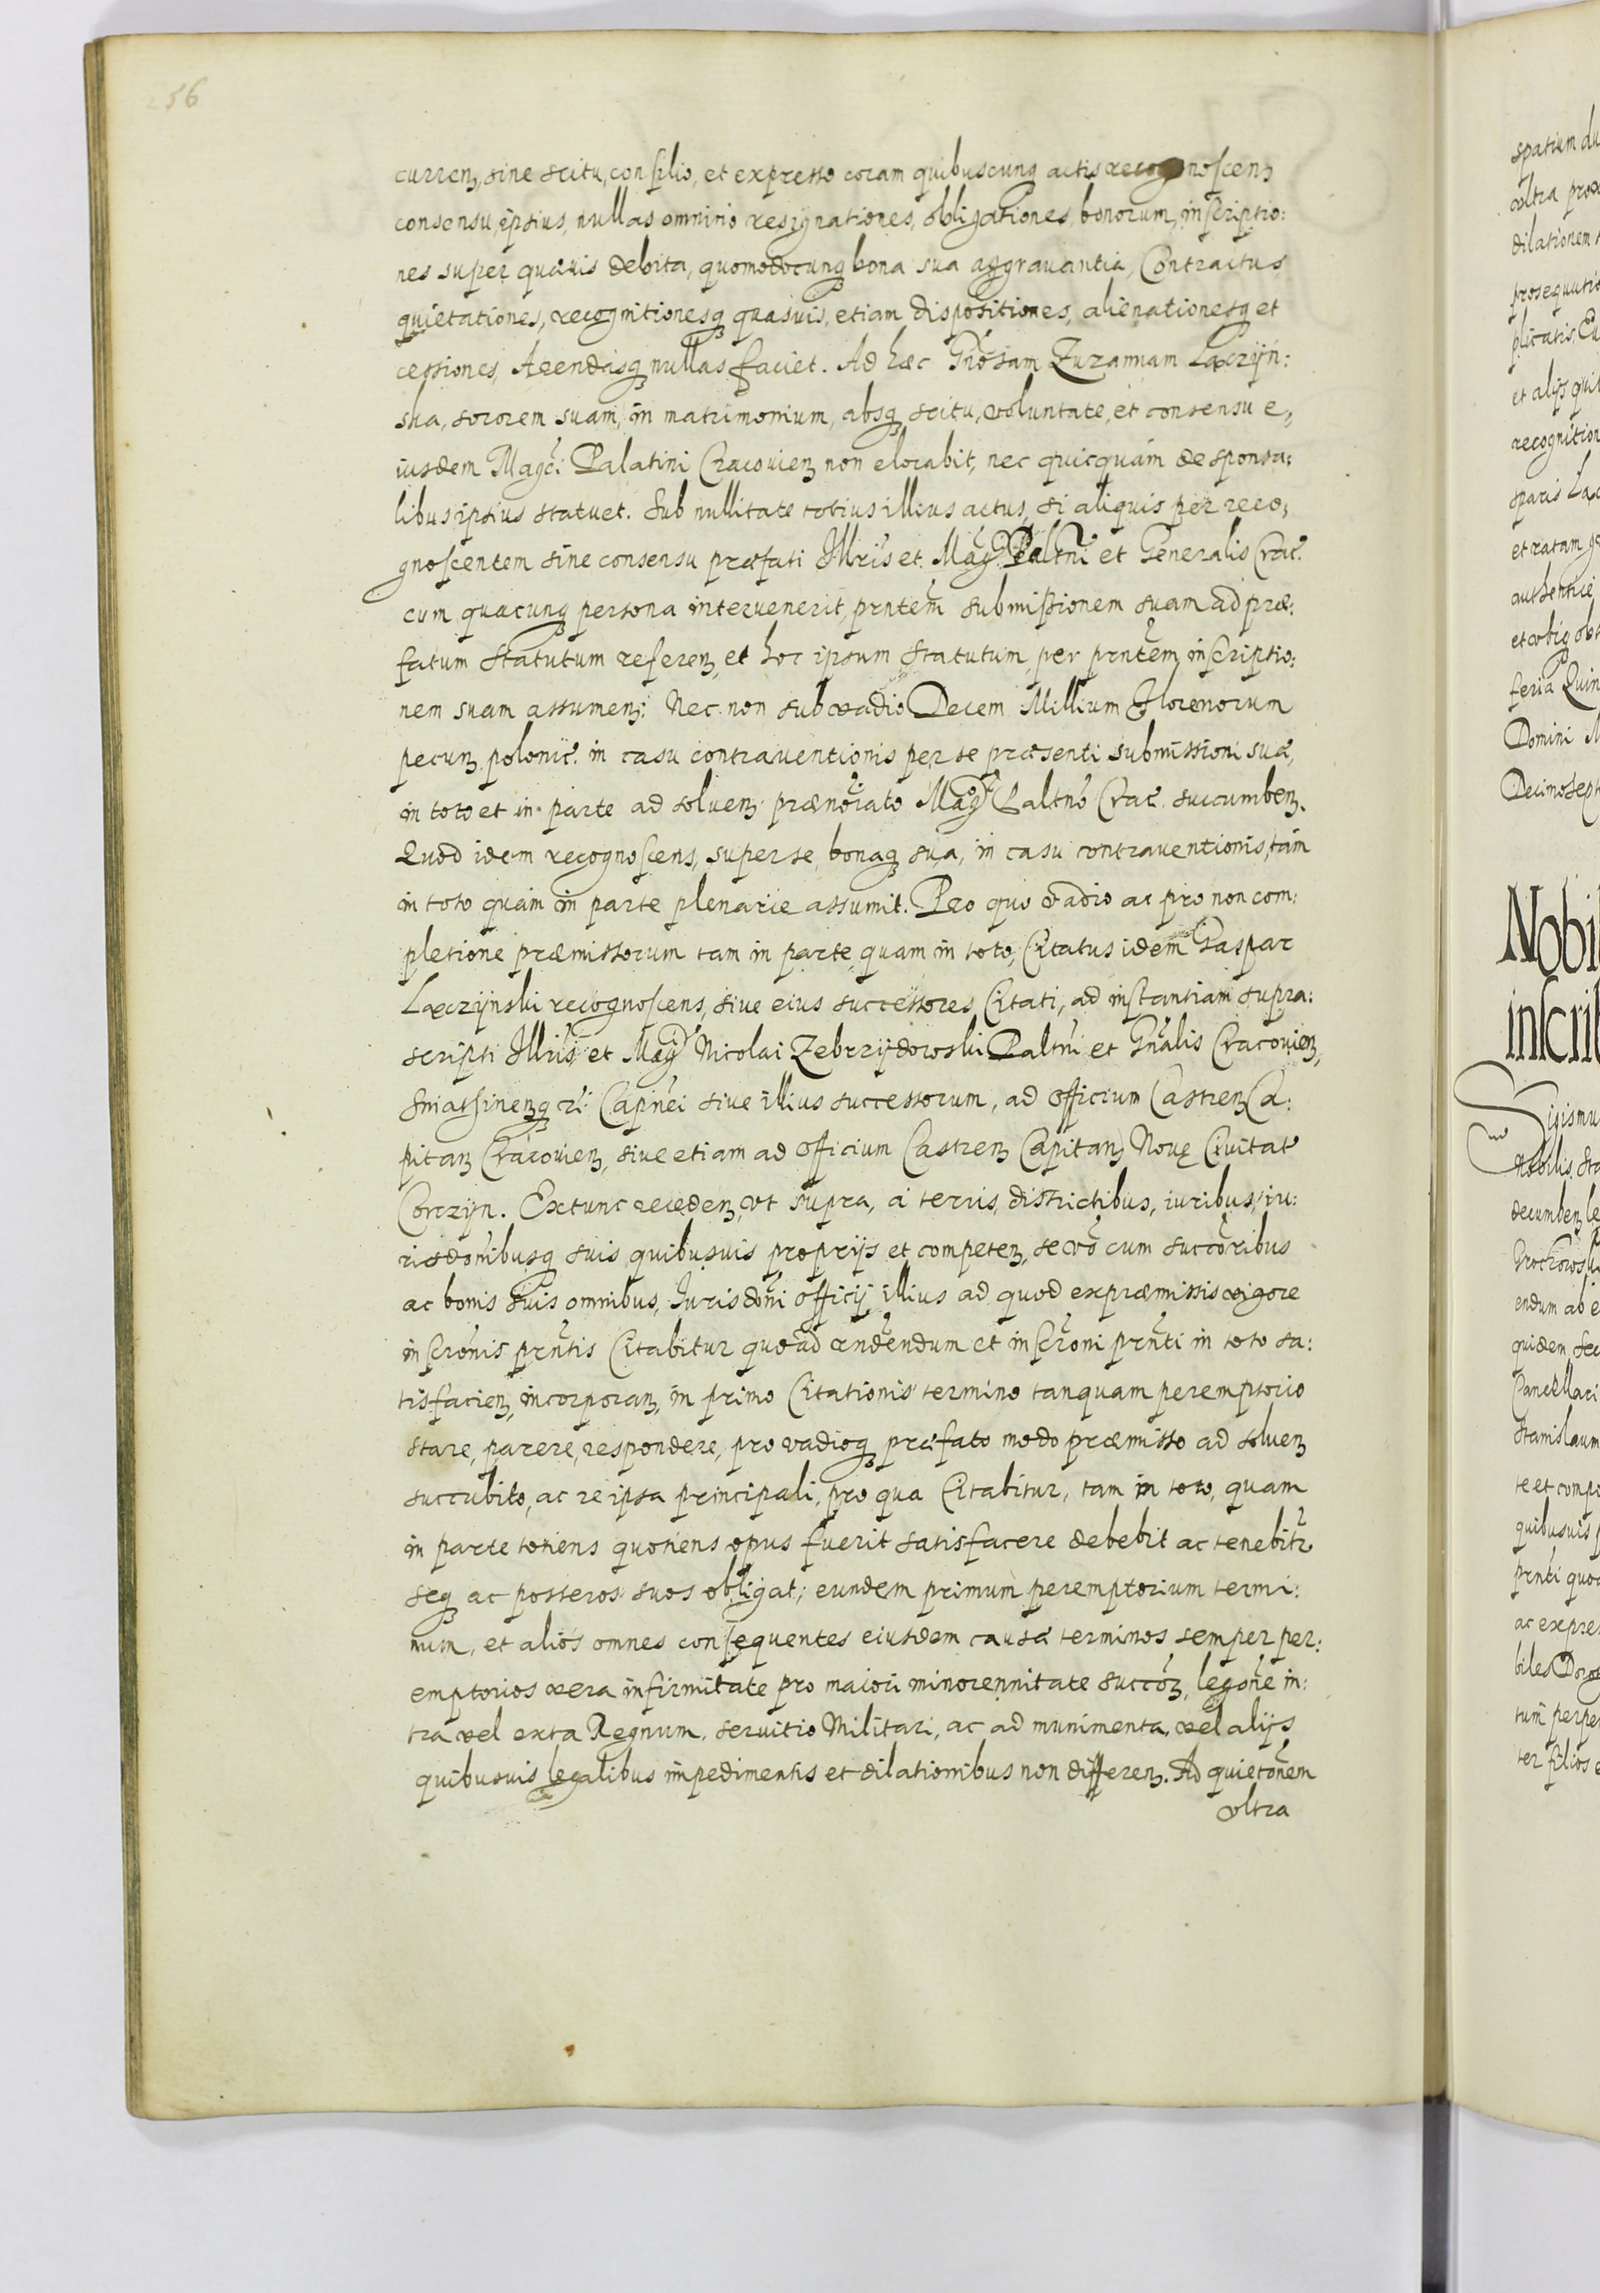 256
currenꝫ, sine scitu, consilio, et expresso coram quibuscunqꝫ actis recognoscenꝫ
consensu ipsius, nullas omnino resignationes, obligationes, bonorum, inscriptio:
nes super quævis debita, quomodocunqꝫ bona sua aggravantia, Contractus
quietationes, recognitionesqꝫ quasvis, etiam dispositiones, alienationesqꝫ et
cessiones, Arendasqꝫ nullas faciet. Ad hæc Gnosam Zuzannam Lączÿn:
ska, sororem suam, in matrimonium, absqꝫ scitu, voluntate, et consensu e,,
iusdem Magci: Palatini Cracovienꝫ non elocabit, nec quicquam de sponsa:
libus ipsius statuet. Sub nullitate totius illius actus, si aliquis per reco,
gnoscentem sine consensu præfati Illris et Magci Paltni et Generalis Crac.
cum quacunqꝫ persona intervenerit, pntem submissionem suam ad præ:
fatum Statutum referenꝫ, et hoc ipsum Statutum, per pntem inscriptio:
nem suam assumenꝫ: Nec non sub vadio Decem Millium Florenorum
pecunꝫ polonic. in casu contraventionis per se præsenti submissioni suæ,
in toto et in parte ad solvenꝫ prænoiato Magco Paltno Crac. succumbenꝫ.
Quod idem recognoscens, super se, bonaqꝫ sua, in casu contraventionis, tam
in toto quam in parte plenarie assumit. Pro quo vadio ac pro non com:
pletione præmissorum tam in parte, quam in toto, Citatus idem Gaspar
Lączÿnski recognoscens, sive eius successores Citati, ad instantiam supra:
scripti Illris et Magci Nicolai Zebrzÿdowski Paltni et Gnalis Cracovienꝫ,
Sniatÿnenꝫqꝫ rc: Capnei sive illius successorum, ad officium Castrenꝫ Ca:
pitanꝫ Cracovienꝫ, sive etiam ad Officium Castrenꝫ Capitanꝫ Novę Civitat
Corczÿn. Extunc recedenꝫ, ut supra, a terris, districtibus, iuribus, iu:
risdonibusqꝫ suis quibusvis proprijs et competenꝫ, se vo cum succoribus
ac bonis suis omnibus, Jurisdoni officij illius ad quod ex præmissis vigore
inscronis prntis Citabitur quoad rndendum et inscroni prnti in toto sa:
tisfacienꝫ, incorporanꝫ, in primo Citationis termino tanquam peremptorio
stare, parere, respondere, pro vadioqꝫ præfato modo præmisso ad solvenꝫ
succubito, ac re ipsa principali, pro qua Citabitur, tam in toto, quam
in parte totiens quotiens opus fuerit satisfacere debebit ac tenebitr
seqꝫ ac posteros suos obligat; eundem primum peremptorium termi:
num, et alios omnes consequentes eiusdem causæ terminos semper per:
emptorios vera infirmitate pro maiori minorennitate succoꝝ, legone in:
tra vel exta Regnum, servitio Militari, ac ad munimenta, vel alijs
quibusvis legalibus impedimentis et dilationibus non differenꝫ. Ad quietonem
ultra
spatium du
ultra præ
dilationem
prosequutio
plicatis. Eu
et alijs qui
recognition
sparis Łąc
et ratam g
authentice
et ubiqꝫ obt
feria Quin
Domini M
Decimosept
Nobil
inscrib
Sigismu
Nobilis Sta
decumbenꝫ le
endum ab e
quidem Sec
Cancellari
Stanislaum
te et compe
quibusvis p
prnti quo
ac expre
biles Doro
tum perpe
ter filios e